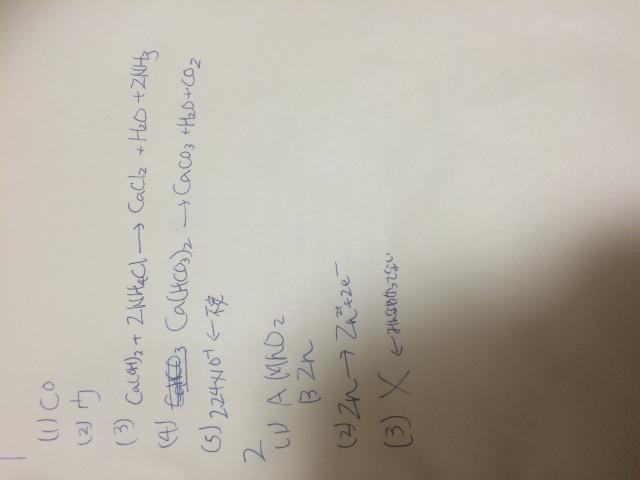 1
(1) CO
(2) ウ
(3) Ca(OH)2 + 2NH4Cl → CaCl2 + H2O + 2NH3
(4) Ca(HCO3)2 → CaCO3 + H2O + CO2
(5) 2.24×10⁻¹ ←
2
(1) A MnO2
B Zn
(2) Zn → Zn²⁺ + 2e⁻
(3) X ←